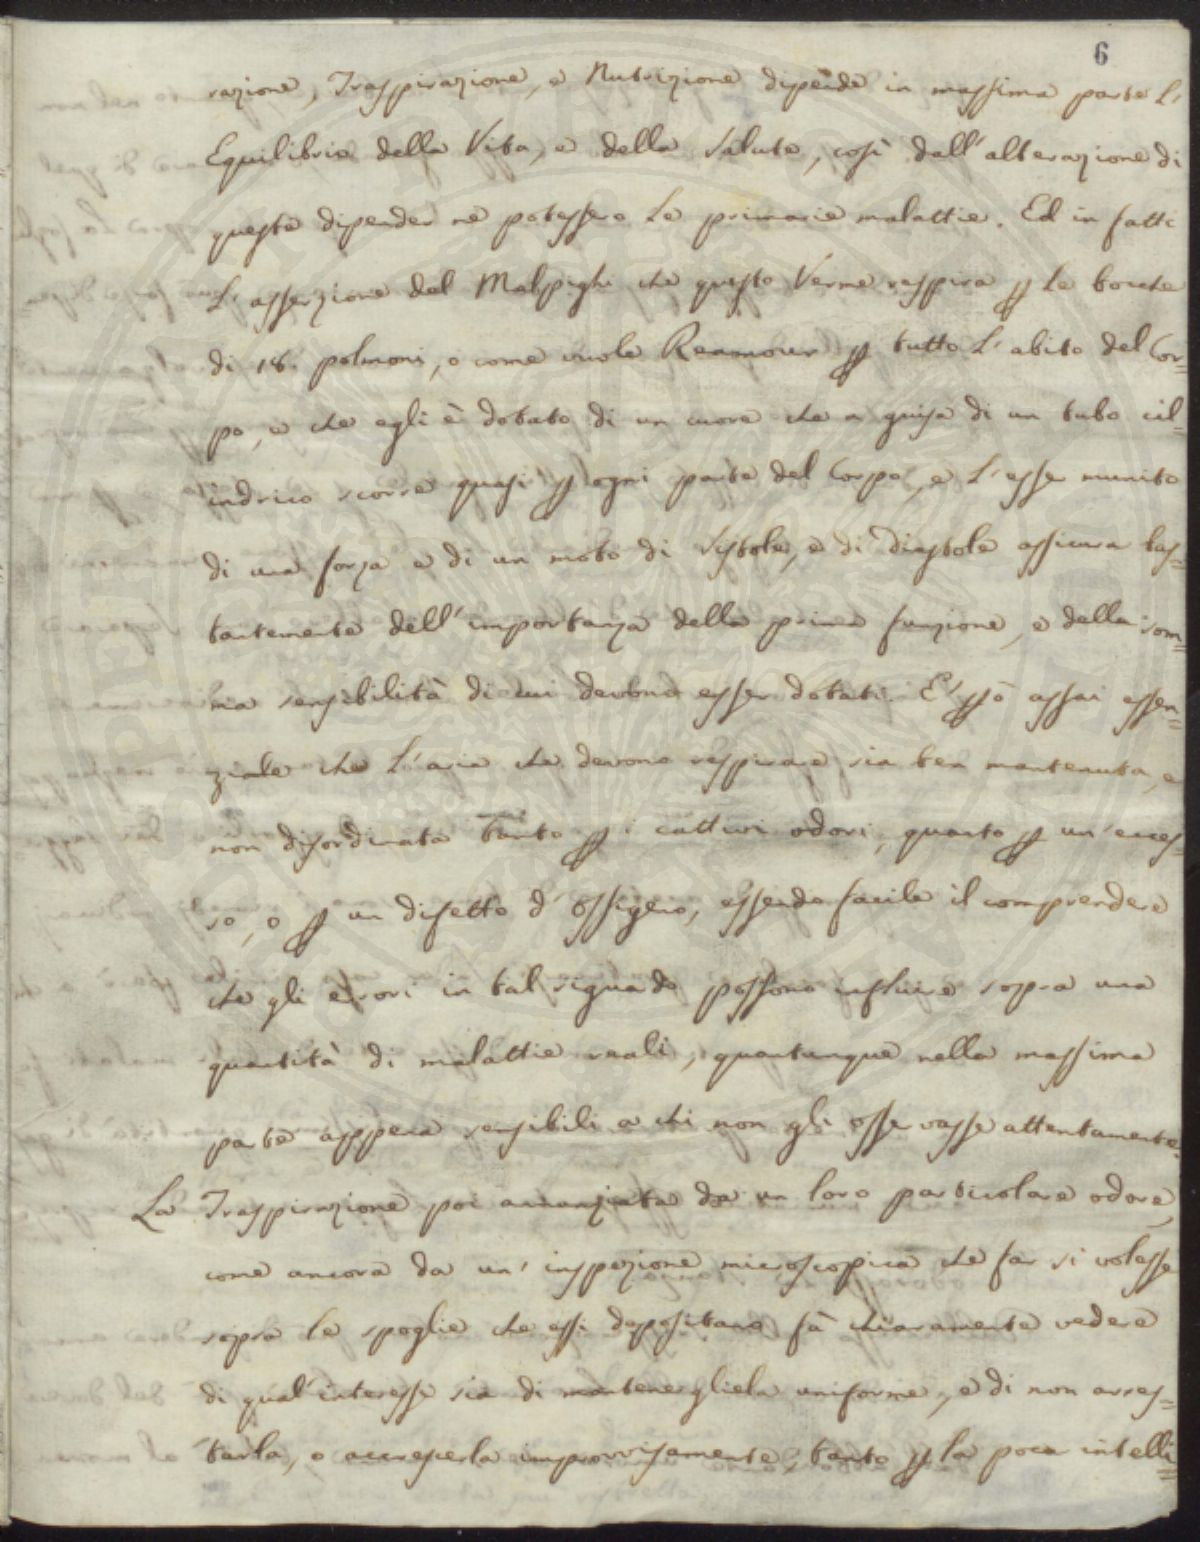 6
razione, Traspirazione, e Nutrizione dipende in massima parte l'
Equilibrio della Vita, e della Salute, così dall'alterazione di
queste dipender ne potessero le primarie malattie. Ed in fatti
l'asserzione del Malpighi che questo Verme respira p le bocche
di 18. polmoni, o come vuole Reamour p tutto l'abito del Cor=
po, e che egli è dotato di un cuore che a guisa di un tubo cil=
indrico scorre quasi p ogni parte del Corpo, e l'esser munito
di una forza e di un moto di Sistole, e di Diastole assicura bas=
tantemente dell'importanza della prima funzione, e della som=
ma sensibilità di cui devono esser dotati. E' pò assai essen=
ziale che l'aria che devono respirare sia ben mantenuta, e
non disordinata tanto p i cattivi odori, quanto p un'ecces=
so, o p un difetto d'ossigeno, essendo facile il comprendere
che gli errori in tal riguardo possono influire sopra una
quantità di malattie reali, quantunque nella massima
parte appena sensibili a chi non gli osservasse attentamente.
La Traspirazione poi annunziata da un loro particolare odore,
come ancora da un' inspezione microscopica che far si volesse
sopra le spoglie che essi depositano fà chiaramente vedere
di qual'interesse sia di mantenergliela uniforme, e di non arres=
tarla, o accrescerla improvvisamente, tanto p la poca intelli=